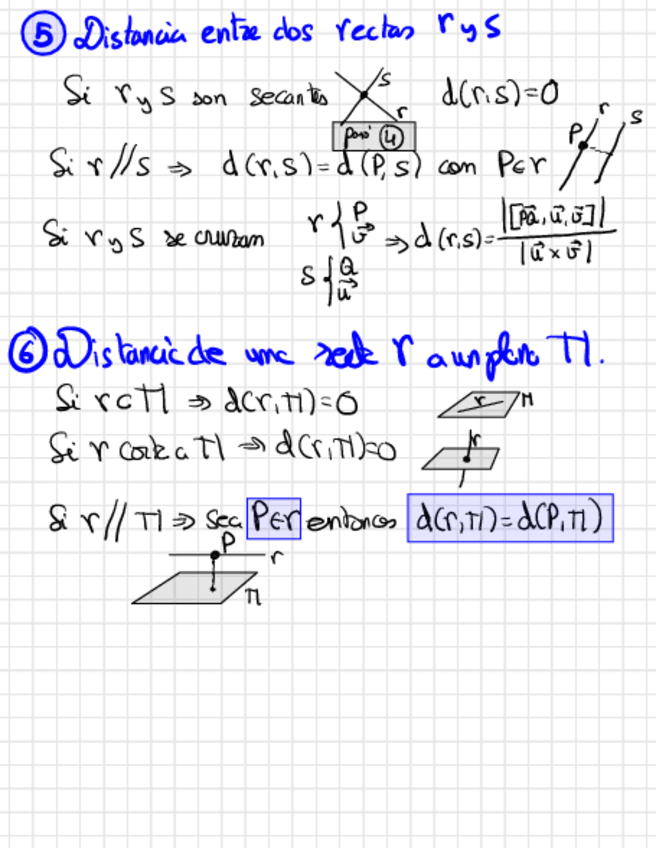 ⑤ Distancia entre dos rectas r y s
Si r y s son secantes s r d(r,s)=0
paso ④
Si r//s ⇒ d(r,s)=d(P,s) con P∈r P r s
Si r y s se cruzan r { P v⃗ ⇒ d(r,s)= |[PQ⃗, u⃗, v⃗]| / |u⃗ × v⃗|
s { Q u⃗
⑥ Distancia de una recta r a un plano π.
Si r⊂π ⇒ d(r,π)=0 r π
Si r corta a π ⇒ d(r,π)=0 r
Si r//π ⇒ sea P∈r entonces d(r,π)=d(P,π)
P r
π